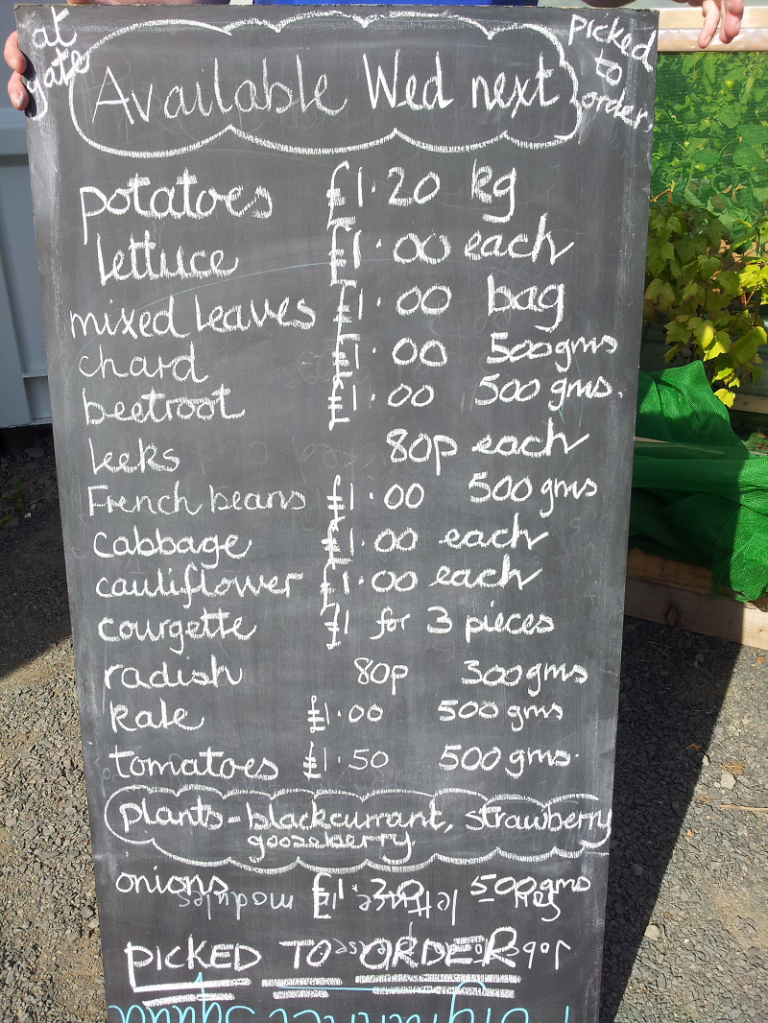 at gate
picked to order.
Available Wed next
potatoes £1.20 kg
lettuce £1.00 each
mixed leaves £1.00 bag
chard £1.00 500gms
beetroot £1.00 500 gms.
leeks 80p each
French beans £1.00 500 gms
cabbage £1.00 each
cauliflower £1.00 each
courgette £1 for 3 pieces
radish 80p 300gms
kale £1.00 500 gms
tomatoes £1.50 500 gms.
plants - blackcurrant, strawberry
gooseberry
onions £1.30 500gms
lettuce modules
PICKED TO ORDER